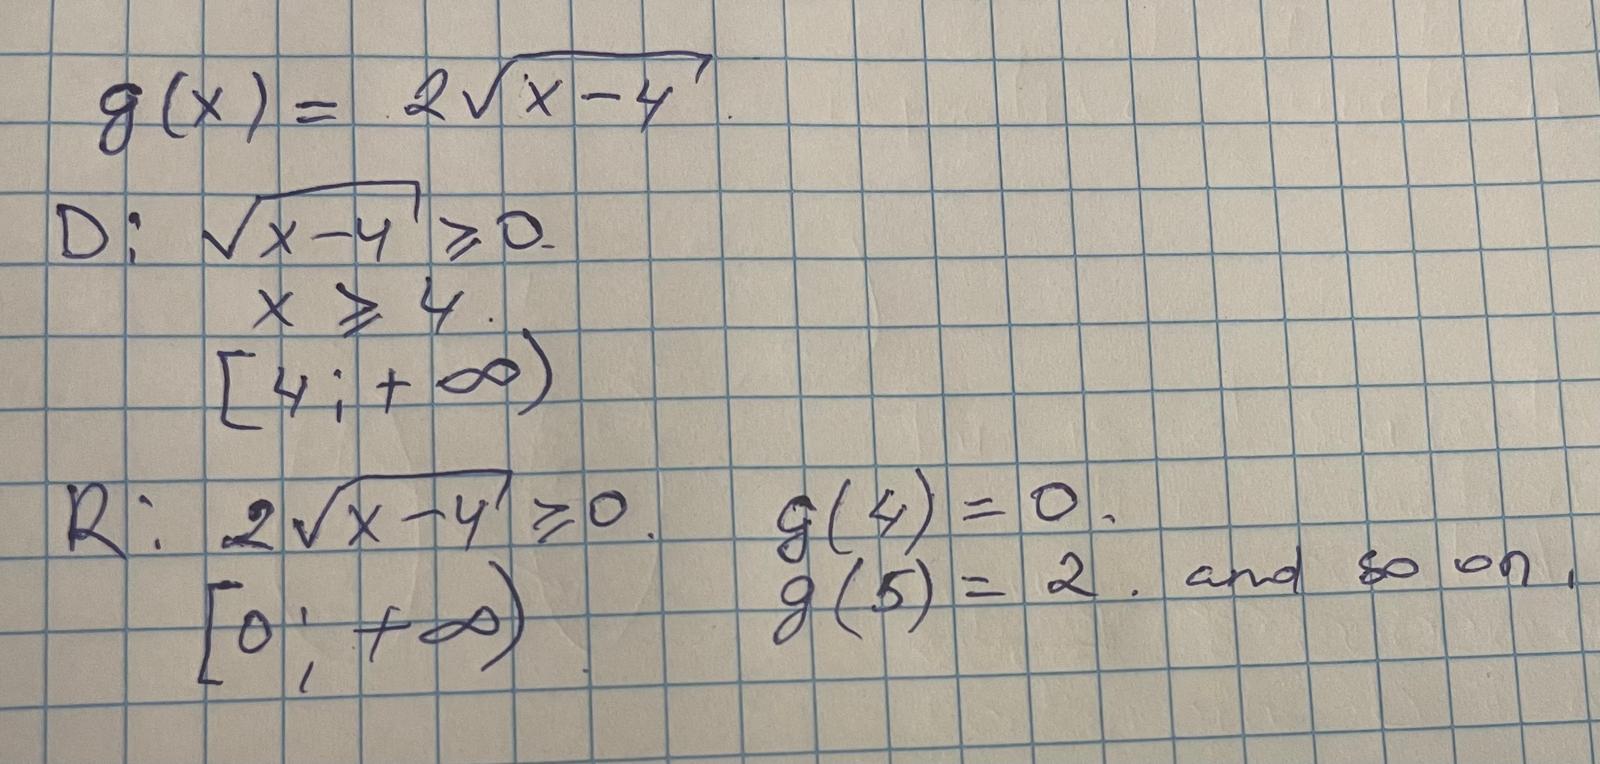 g(x) = 2√(x-4).
D: √(x-4) ⩾ 0.
x ⩾ 4.
[4; + ∞)
R: 2√(x-4) ⩾ 0.
[0; +∞).
g(4) = 0.
g(5) = 2. and so on.